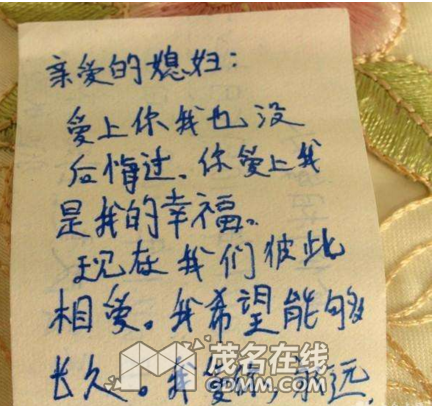 亲爱的媳妇：
爱上你我也没
后悔过、你爱上我
是我的幸福。
现在我们彼此
相爱。我希望能够
长久。我爱你，永远，
茂名在线
GDMM.COM